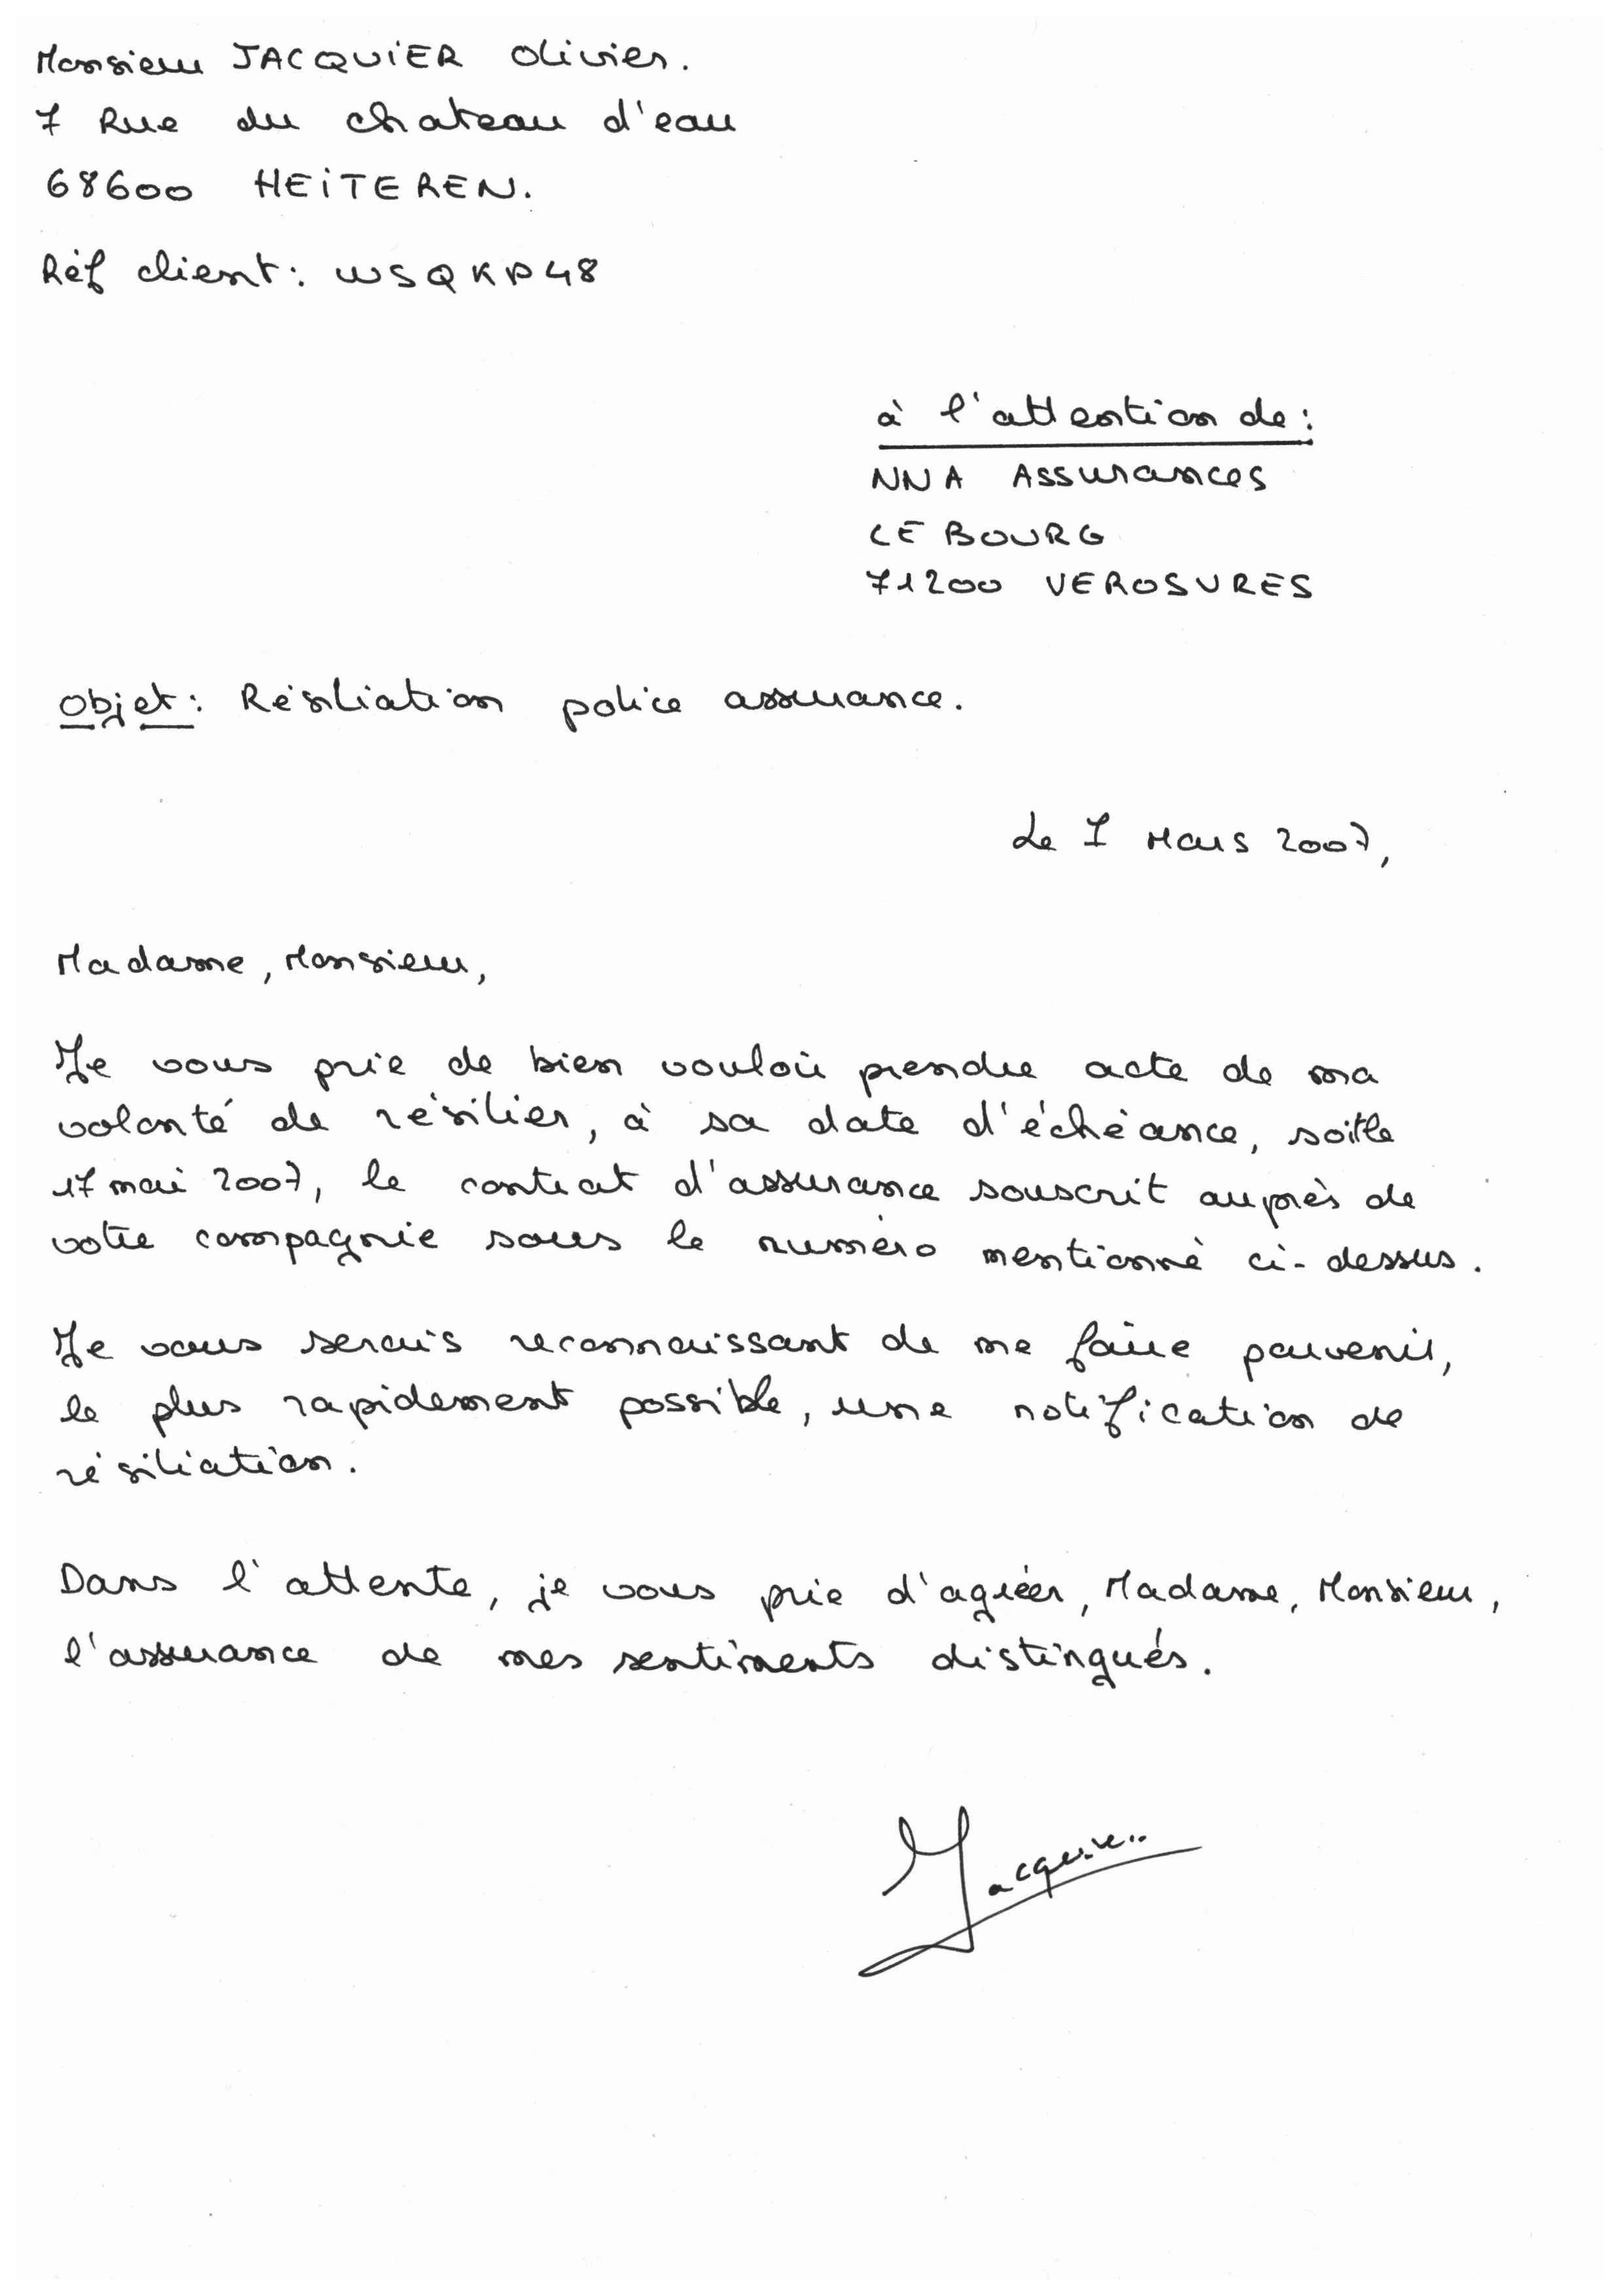 Monsieur JACQUIER Olivier.
7 Rue du chateau d'eau
68600 HEITEREN.
Réf client : WSQKP48
à l'attention de :
NNA Assurances
LE BOURG
71200 VEROSURES
Objet : Résiliation police assurance.
Le 1 Mars 2007,
Madame, Monsieur,
Je vous prie de bien vouloir prendre acte de ma
volonté de résilier, à sa date d'échéance, soit le
17 mai 2007, le contrat d'assurance souscrit auprès de
votre compagnie sous le numéro mentionné ci-dessus.
Je vous serais reconnaissant de me faire parvenir,
le plus rapidement possible, une notification de
résiliation.
Dans l'attente, je vous prie d'agréer, Madame, Monsieur,
l'assurance de mes sentiments distingués.
Jacquier